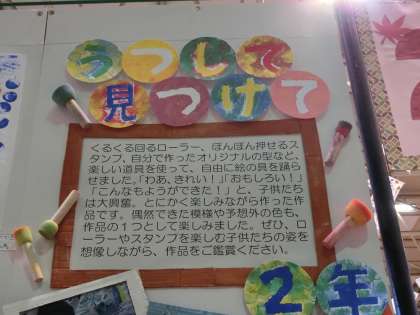 うつして
見つけて
くるくる回るローラー、ぽんぽん押せるス
タンプ、自分で作ったオリジナルの型など、
楽しい道具を使って、自由に絵の具を踊ら
せました。「わあ、きれい！」「おもしろい！」
「こんなもようができた！」と、子供たち
は大興奮。とにかく楽しみながら作った作
品です。偶然できた模様や予想外の色も、
作品の１つとして楽しみました。ぜひ、ロ
ーラーやスタンプを楽しむ子供たちの姿を
想像しながら、作品をご鑑賞ください。
２年